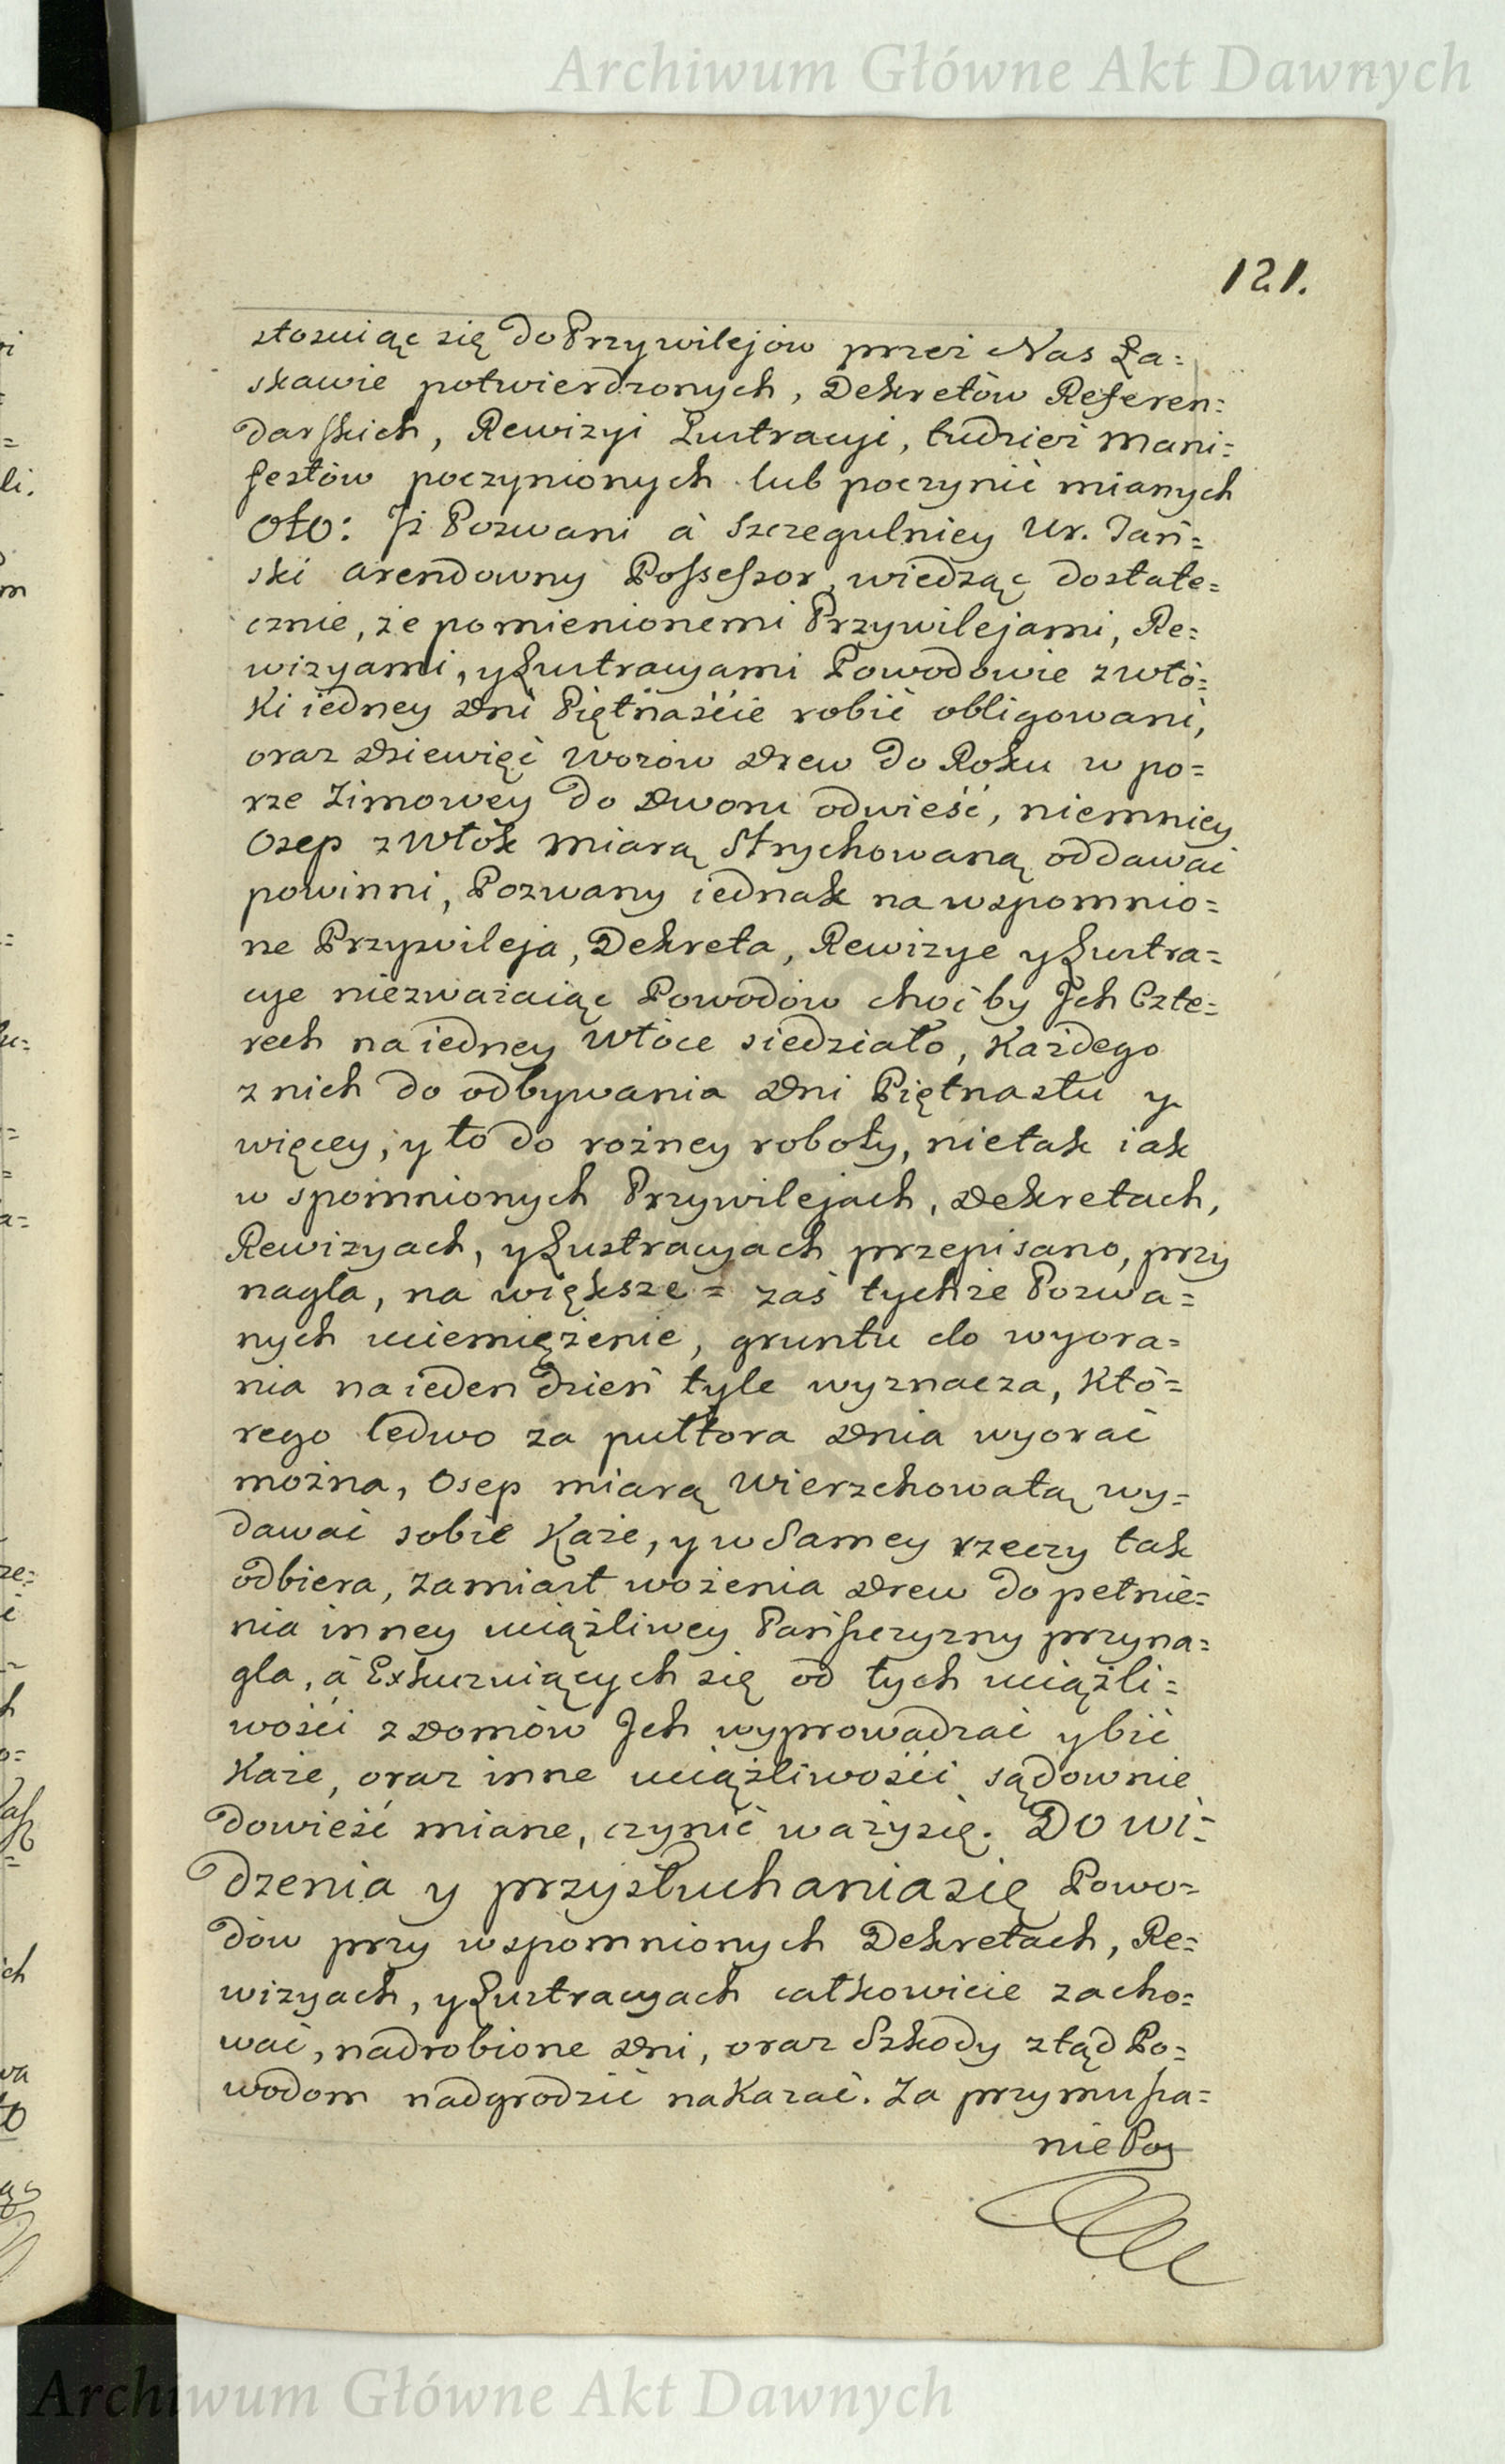 Archiwum Główne Akt Dawnych
121.
stosuiąc się do Przywilejow przez Nas Ła=
skawie potwierdzonych, Dekretów Referen=
darskich, Rewizyi Lustracyi, tudzież Mani=
festów poczynionych lub poczynić mianych
Oto: Iż Pozwani à Szczegulniey Ur. Jań=
ski arendowny Possessor, wiedząc dostate=
cznie, że pomienionemi Przywilejami, Re=
wizyami, y Lustracyami Powodowie z włó=
ki iedney Dni Piętnaście robić obligowani,
oraz Dziewięć Wozów Drew do Roku w po=
rze Zimowey do Dworu odwieść, niemniey
Osep z Włók miarą Strychowaną oddawać
powinni, Pozwany iednak na wspomnio=
ne Przywileja, Dekreta, Rewizye y Lustra=
cye niezważaiąc Powodów choćby Ich Czte=
rech na iedney Włóce siedziało, Każdego
z nich do odbywania Dni Piętnastu y
więcey, y to do rożney roboty, nietak iak
w spomnionych Przywilejach, Dekretach,
Rewizyach, y Lustracyach przepisano, przy
nagla, na większe = zaś tychże Pozwa=
nych uciemiężenie, gruntu do wyora=
nia na ieden dzień tyle wyznacza, Któ=
rego ledwo za pułtora Dnia wyorać
można, Osep miarą Wierzchowatą wy=
dawać sobie Każe, y w Samey rzeczy tak
odbiera, zamiast wożenia Drew do pełnie=
nia inney uciążliwey Pańszczyzny przyna=
gla, à Exkuzuiących się od tych uciążli=
wości z Domów Ich wyprowadzać y bić
Każe, oraz inne uciążliwości sądownie
dowieść miane, czynić waży się. Do wi=
dzenia y przysłuchania się Powo=
dów przy wspomnionych Dekretach, Re=
wizyach, y Lustracyach całkowicie zacho=
wać, nadrobione Dni, oraz Szkody ztąd Po=
wodom nadgrodzić nakazać. Za przymusza=
nie Po
Archiwum Główne Akt Dawnych